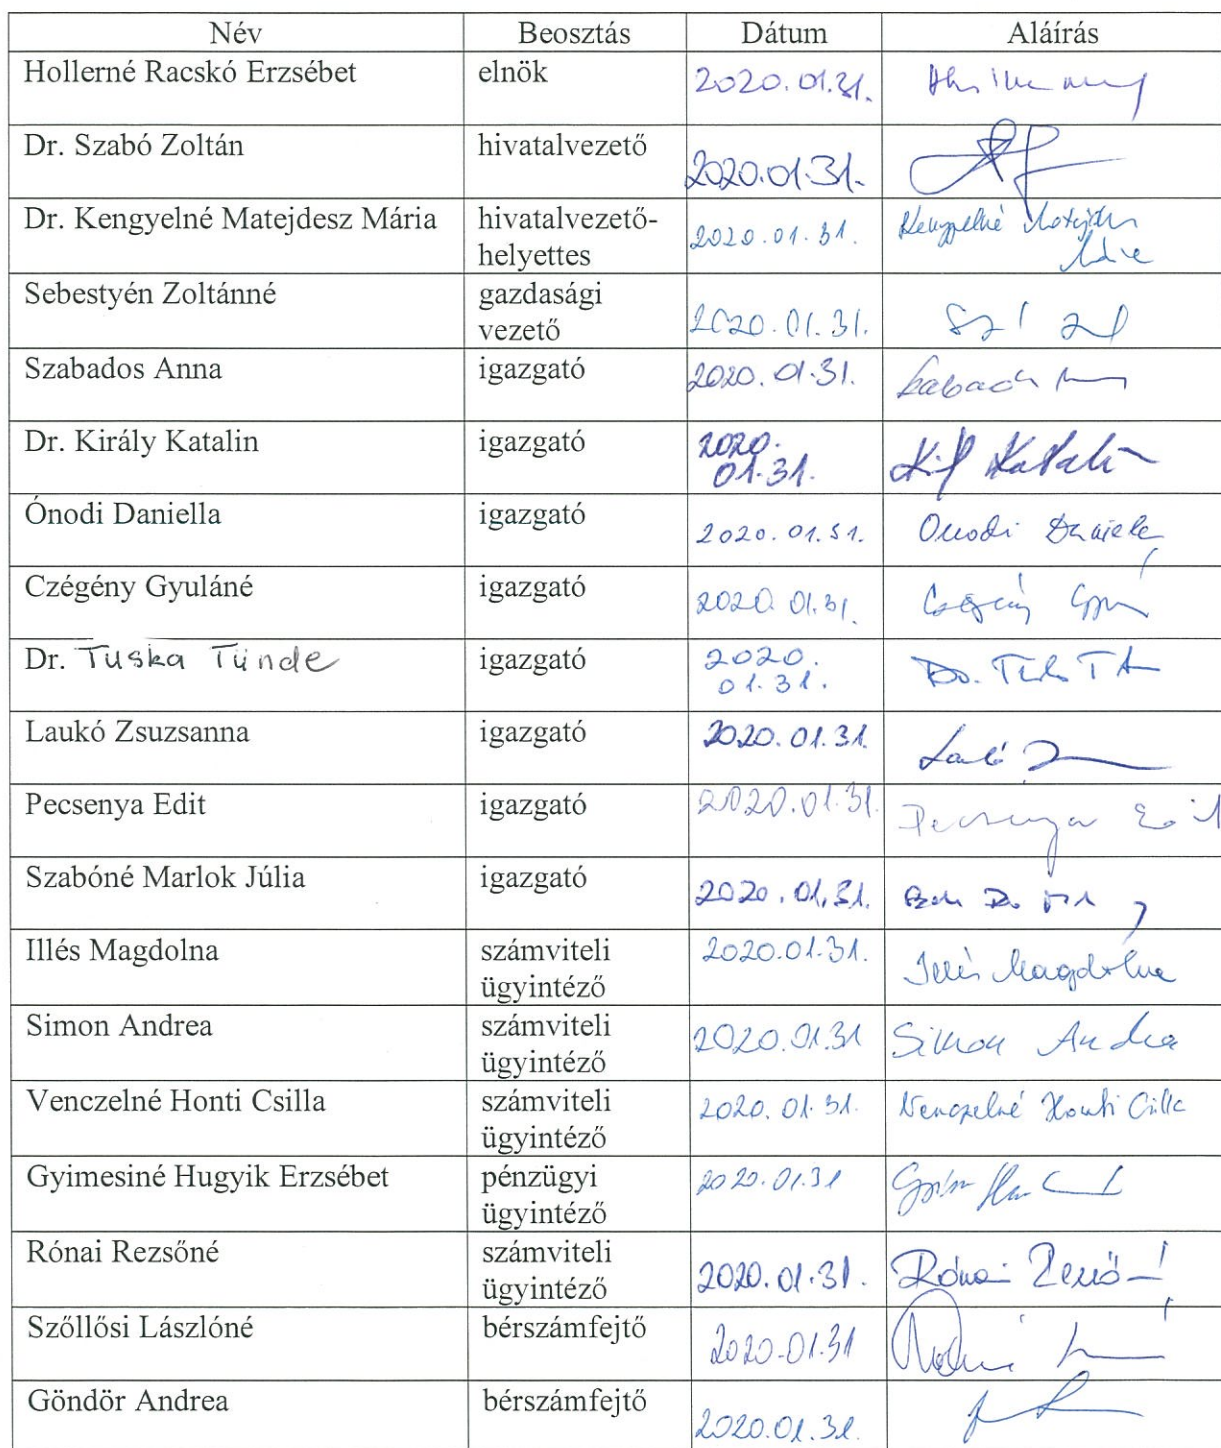 Név Beosztás Dátum Aláírás
Hollerné Racskó Erzsébet elnök 2020.01.31.
Dr. Szabó Zoltán hivatalvezető 2020.01.31.
Dr. Kengyelné Matejdesz Mária hivatalvezető- 2020.01.31. Kengyelné Matejdesz
helyettes Mária
Sebestyén Zoltánné gazdasági
vezető 2020.01.31.
Szabados Anna igazgató 2020.01.31.
Dr. Király Katalin igazgató 2020. Katalin
01.31.
Ónodi Daniella igazgató 2020.01.31. Ónodi Daniella
Czégény Gyuláné igazgató 2020.01.31.
Dr. Tuska Tünde igazgató 2020. Dr.
01.31.
Laukó Zsuzsanna igazgató 2020.01.31.
Pecsenya Edit igazgató 2020.01.31. Pecsenya Edit
Szabóné Marlok Júlia igazgató 2020.01.31.
Illés Magdolna számviteli 2020.01.31. Illés Magdolna
ügyintéző
Simon Andrea számviteli 2020.01.31 Simon Andrea
ügyintéző
Venczelné Honti Csilla számviteli 2020.01.31. Venczelné Honti Csilla
ügyintéző
Gyimesiné Hugyik Erzsébet pénzügyi 2020.01.31
ügyintéző
Rónai Rezsőné számviteli 2020.01.31. Rónai Rezsőné
ügyintéző
Szőllősi Lászlóné bérszámfejtő 2020.01.31
Göndör Andrea bérszámfejtő 2020.01.31.